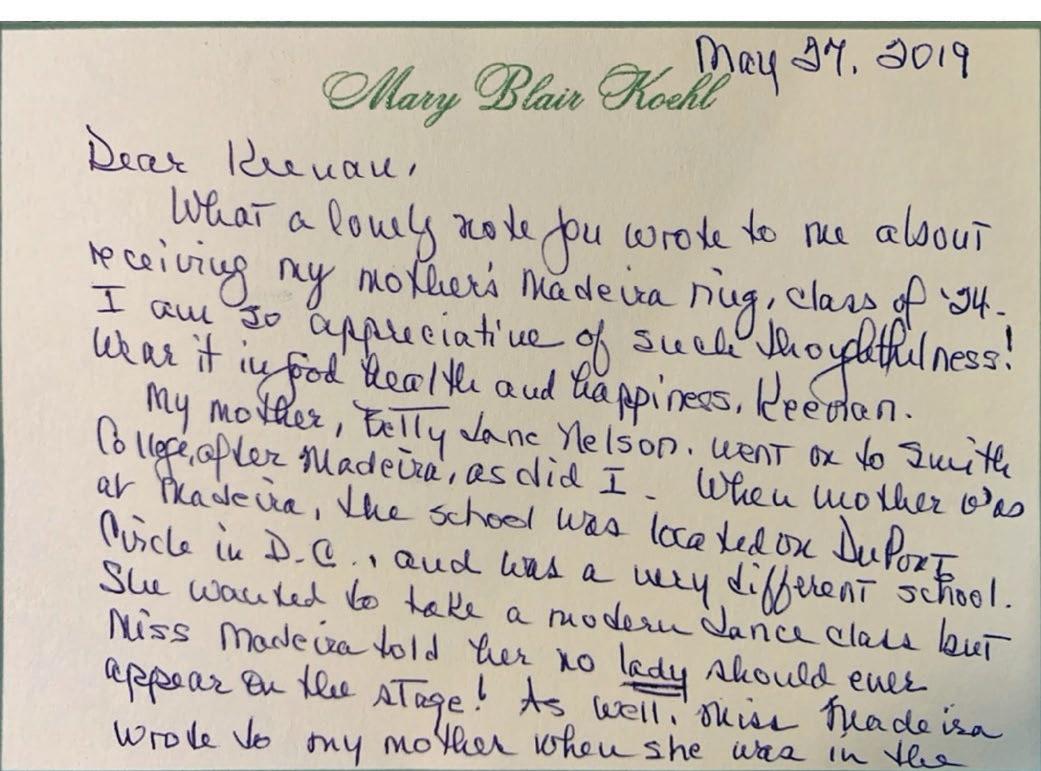 May 27, 2019
Mary Blair Koehl
Dear Keenan,
What a lovely note you wrote to me about
receiving my mother's Madeira ring, class of '24.
I am so appreciative of such thoughtfulness!
Wear it in good health and happiness, Keenan.
My mother, Betty Jane Nelson, went on to Smith
College, after Madeira, as did I. When mother was
at Madeira, the school was located on DuPont
Circle in D.C., and was a very different school.
She wanted to take a modern dance class but
Miss Madeira told her no lady should ever
appear on the stage! As well, Miss Madeira
wrote to my mother when she was in the